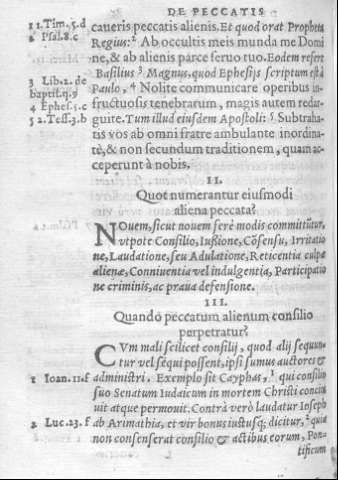 DE PECCATIS
1 1. Tim. 5. d
caueris peccatis alienis. Et quod orat Propheta
2 Psal. 8. c
Regius: ² Ab occultis meis munda me Domi
ne, & ab alienis parce seruo tuo. Eodem refert
Basilius ³ Magnus, quod Ephesijs scriptum est à
3 Lib. 2. de
baptis. q. 9
Paulo, ⁴ Nolite communicare operibus in-
4 Ephes. 5. c
fructuosis tenebrarum, magis autem redar-
5 2. Tess. 3. b
guite. Tum illud eiusdem Apostoli: ⁵ Subtraha-
tis vos ab omni fratre ambulante inordina-
tè, & non secundum traditionem, quam ac-
ceperunt à nobis.
II.
Quot numerantur eiusmodi
aliena peccata?
NOuem, sicut nouem ferè modis committũtur,
vtpote Consilio, Iußione, Cõsensu, Irritatio
ne, Laudatione, seu Adulatione, Reticentia culpæ
alienæ, Conniuentia vel indulgentia, Participatio
ne criminis, ac praua defensione.
III.
Quando peccatum alienum consilio
perpetratur?
CVm mali scilicet consilij, quod alij sequun-
tur vel sequi possent, ipsi sumus auctores &
1 Ioan. 11. f
administri. Exemplo sit Cayphas, ¹ qui consilio
suo Senatum Iudaicum in mortem Christi concita
uit atque permouit. Contrà verò laudatur Ioseph
2 Luc. 23. f
ab Arimathia, et vir bonus iustusq́; dicitur, ² quia
non consenserat consilio & actibus eorum, Pon-
tificum